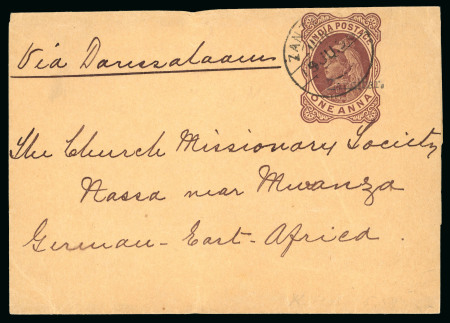 Via Daressalaam
INDIA POSTAGE
ONE ANNA
The Church Missionary Society
Nassa near Mwanza
German-East-Africa.